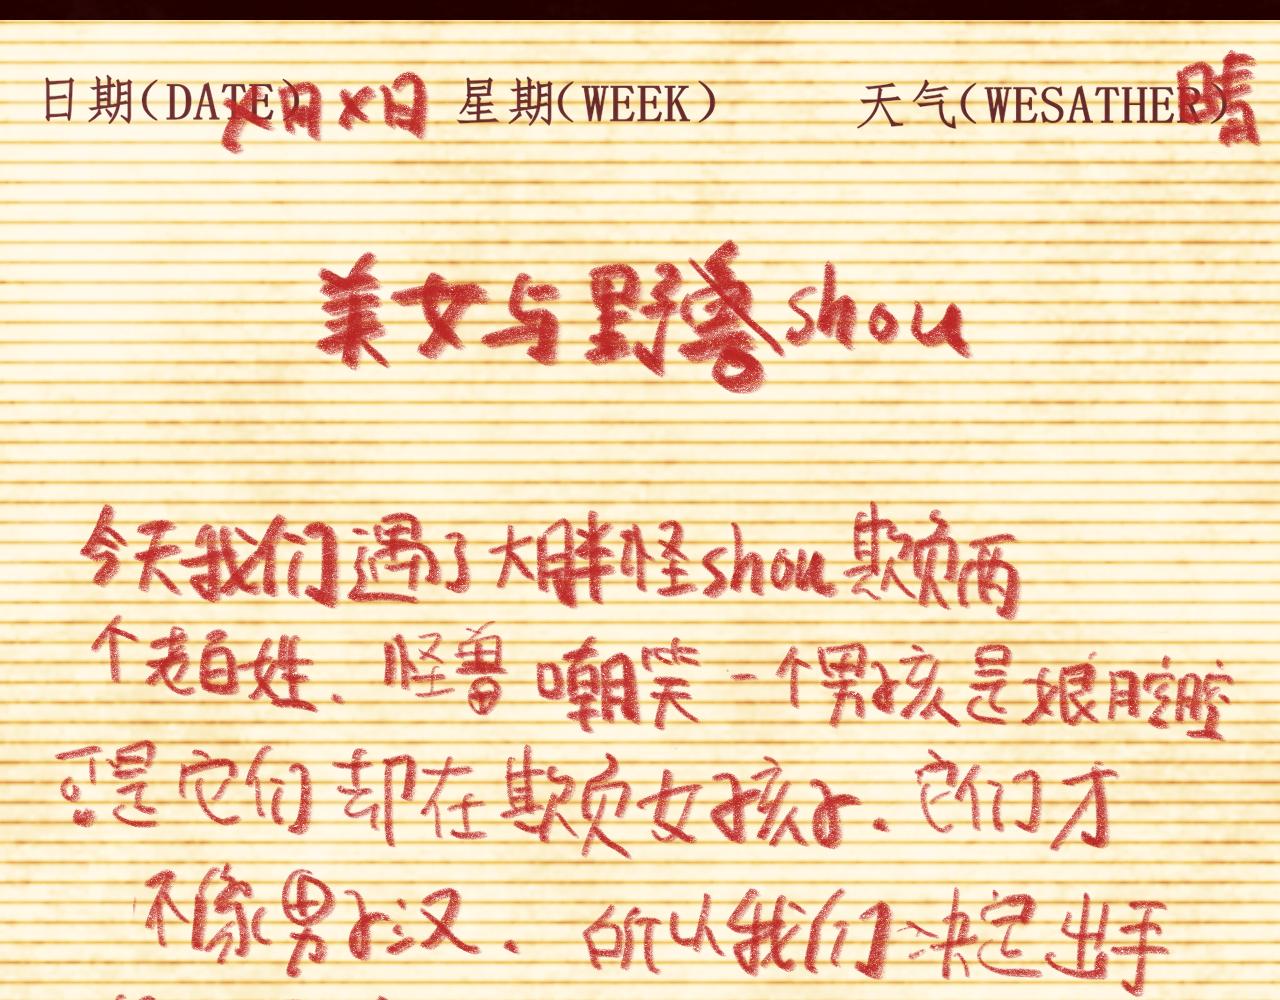 日期(DATE) X月X日 星期(WEEK) 天气(WESATHER) 晴
美女与野兽shou
今天我们遇了大胖怪shou欺负两
个老百姓.怪兽嘲笑一个男孩是娘腔腔
可是它们却在欺负女孩子.它们才
不像男子汉.所以我们决定出手